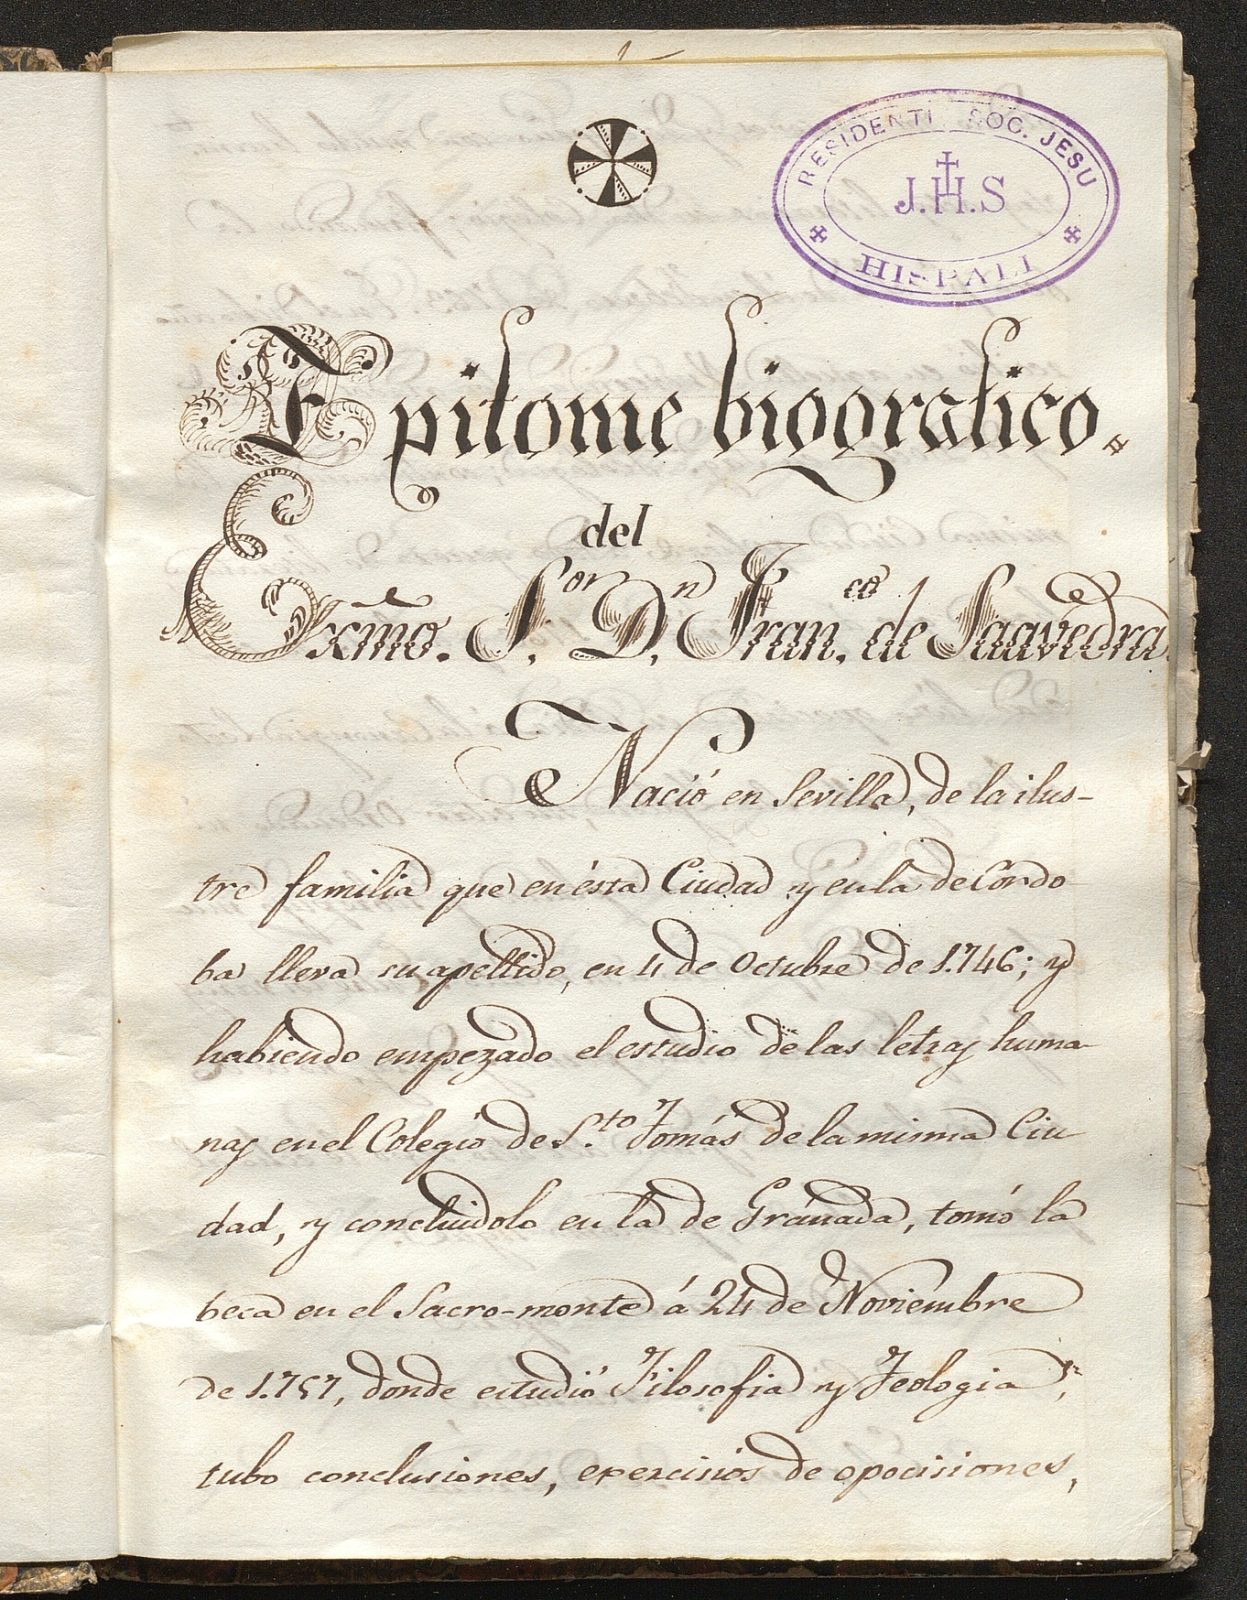 1
RESIDENTI. SOC. JESU
J.H.S
HISPALI
Epitome biografico.
del
Exmo. S.or D.n Fran.co de Saavedra.
Nació en Sevilla, de la ilus-
tre familia que en ésta Ciudad y en la de Cordo
ba lleva su apellido, en 4 de Octubre de 1.746; y
habiendo empezado el estudio de las letras huma-
nas en el Colegio de S.to Tomás de la misma Ciu-
dad, y concluidolo en la de Granada, tomó la
beca en el Sacro-monte á 24 de Noviembre
de 1.757, donde estudió Filosofia y Teologia,
tubo conclusiones, exercisios de opocisiones,